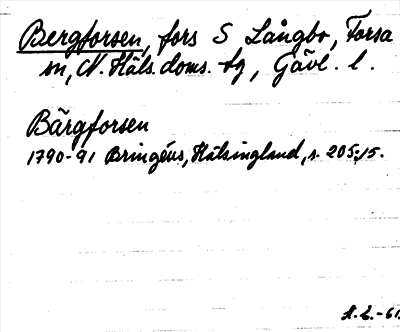 Bergforsen, fors S Långbo, Forsa
sn, N. Häls. doms. tg, Gävl. l.
Bärgforsen
1790-91 Bringéus, Hälsingland, s. 205:15.
H.L.-61.